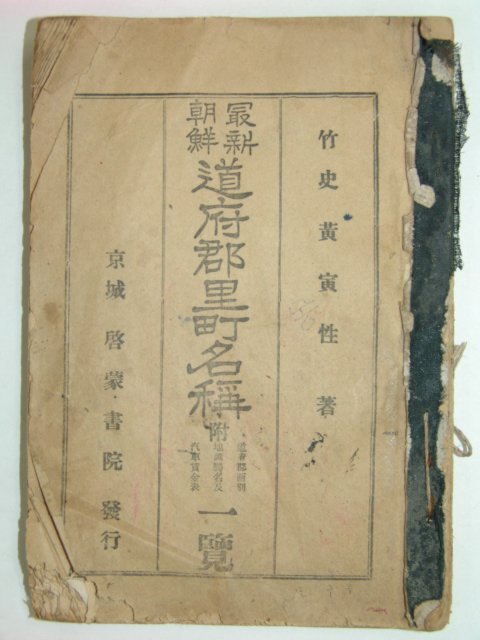 竹史 黃寅性 著
最新
朝鮮
道府郡里町名稱
附
汽車賃金表
一覽
京城 啓蒙書院發行